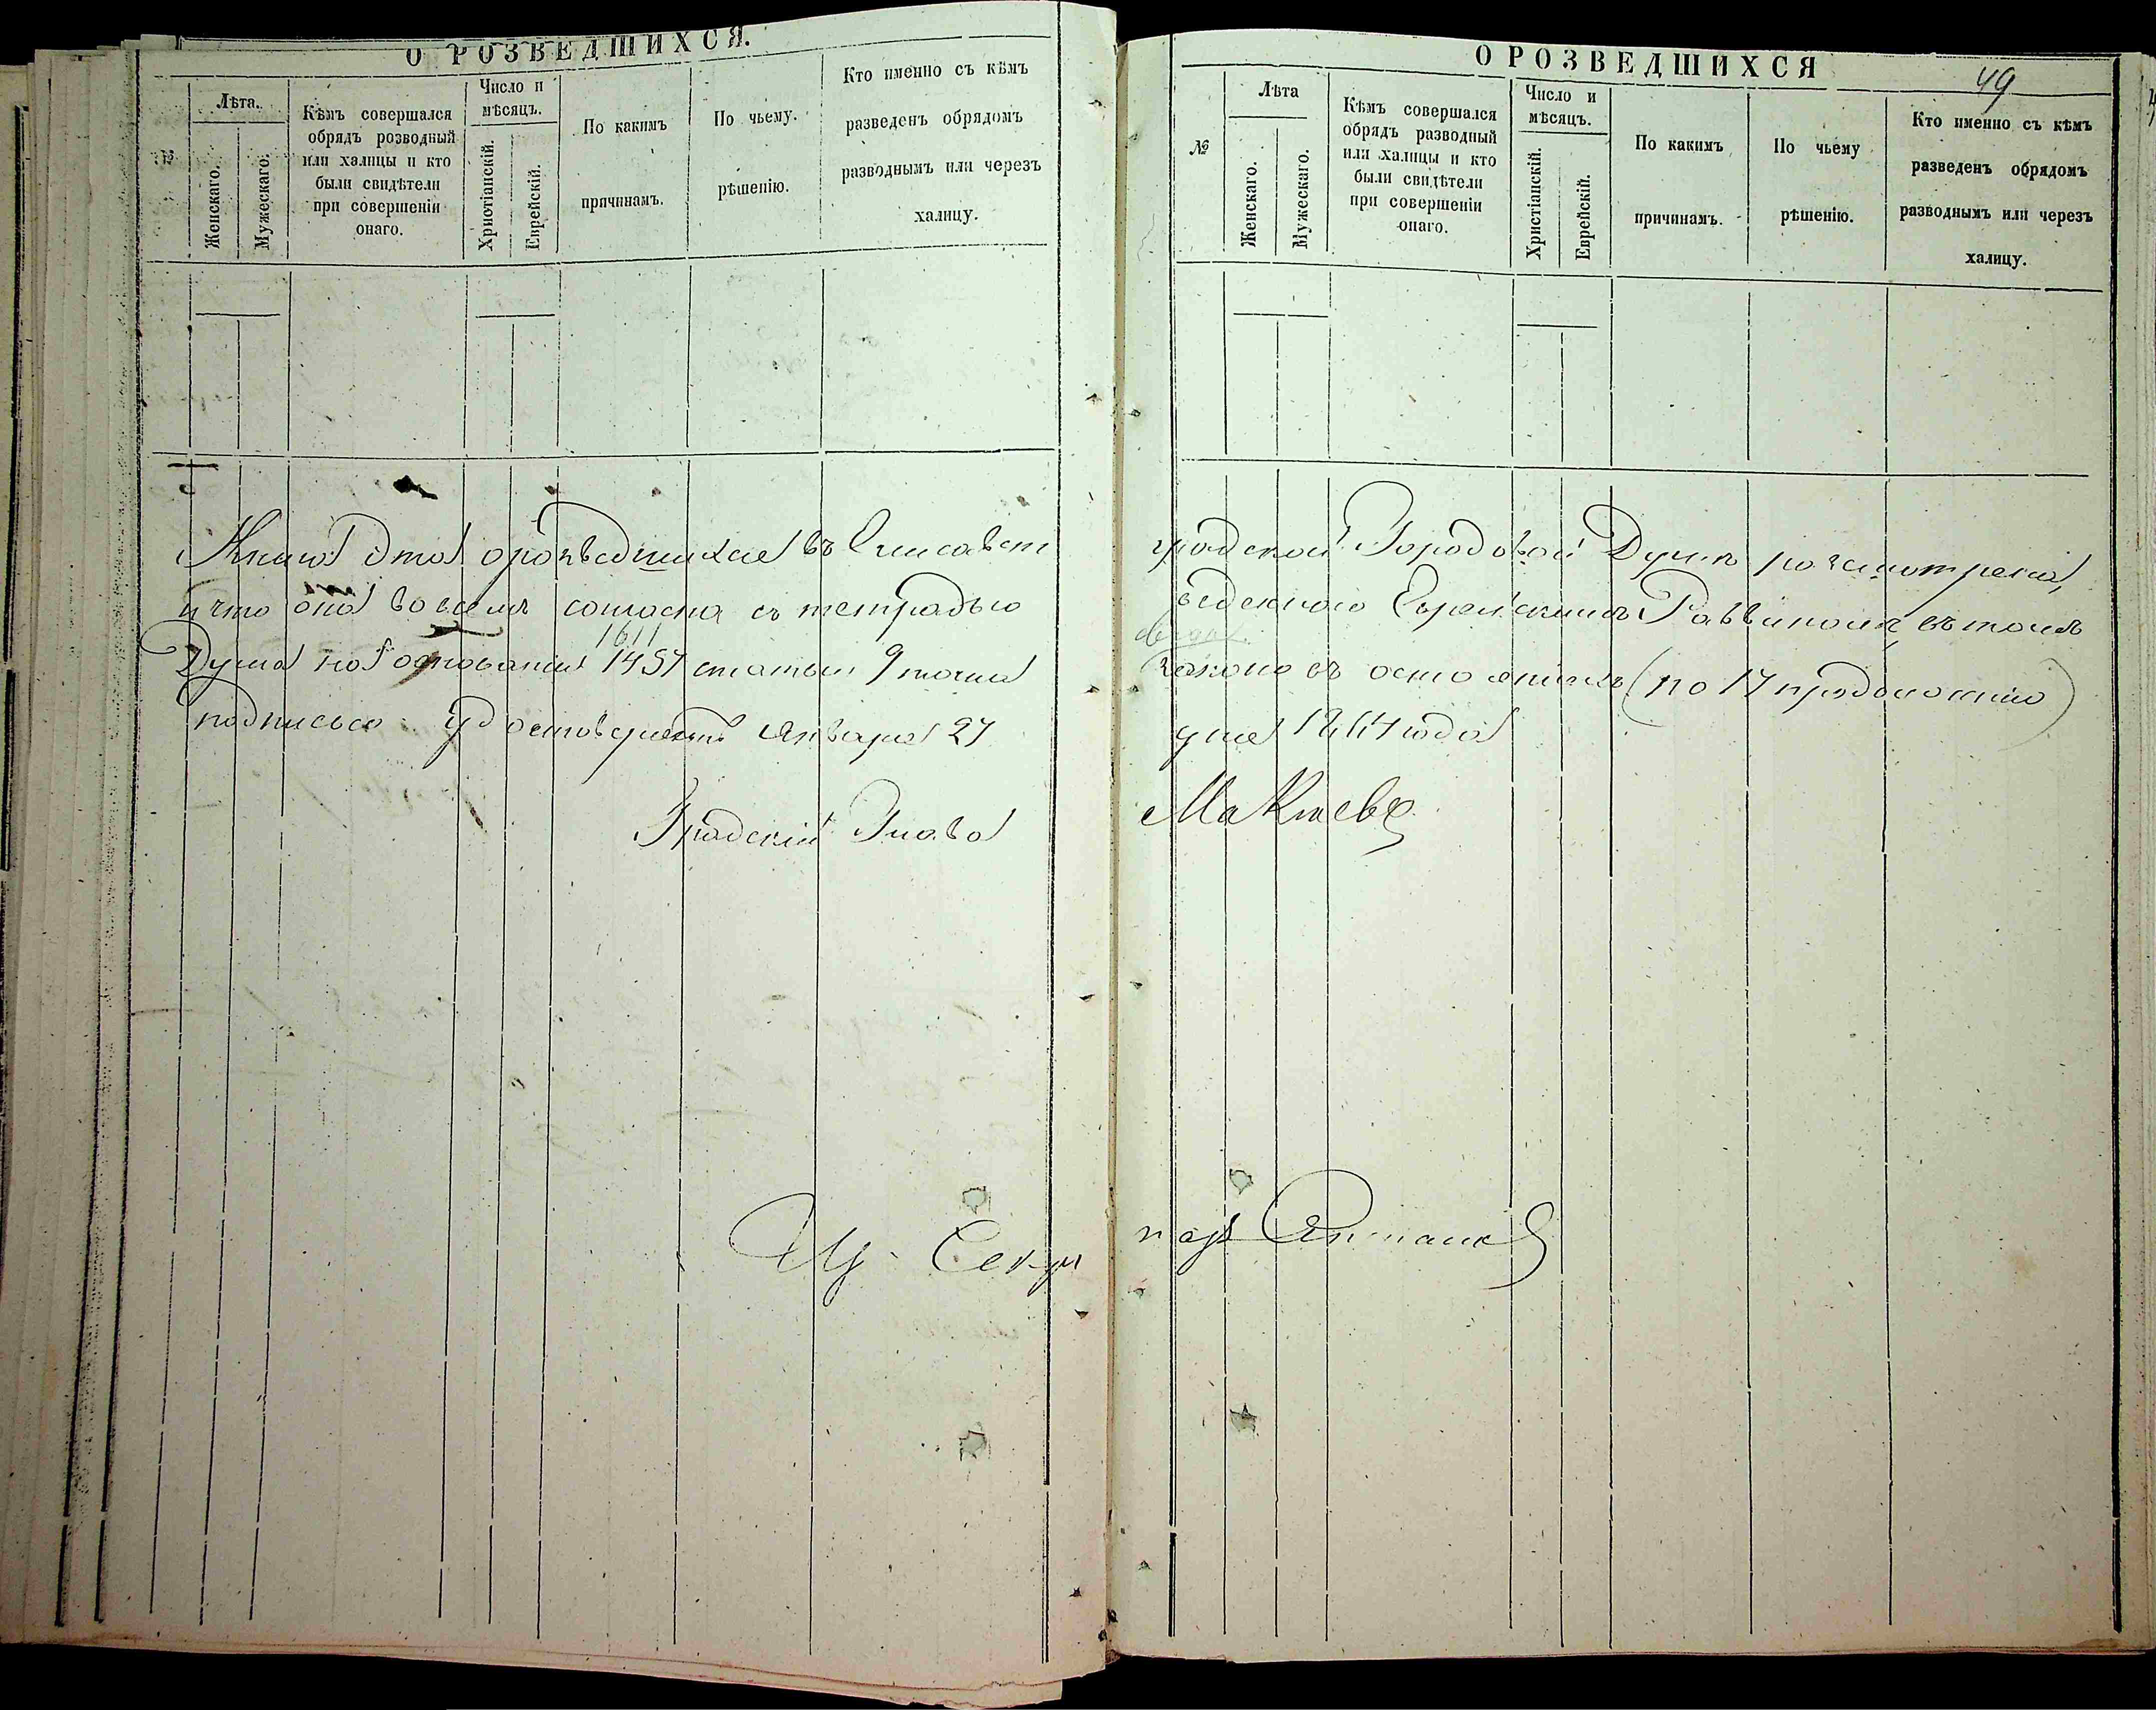 О РОЗВЕДШИХСЯ.
№
Лѣта.
Женскаго.
Мужескаго.
Кѣмъ совершался
обрядъ розводный
или халицы и кто
были свидѣтели
при совершеніи
онаго.
Число и
мѣсяцъ.
Христіанскій.
Еврейскій.
По какимъ
причинамъ.
По чьему.
рѣшенію.
Кто именно съ кѣмъ
разведенъ обрядомъ
разводнымъ или черезъ
халицу.
Книга эта о розведшихся въ Елисавет
и что она во всемъ согласна съ тетрадью
1611
Дума на основаніи 1457 статьи 9 тома
подписью удостовѣряетъ Января 27
Градскій Глава
Секре
О РОЗВЕДШИХСЯ
49
№
Лѣта
Женскаго.
Мужескаго.
Кѣмъ совершался
обрядъ разводный
или халицы и кто
были свидѣтели
при совершеніи
онаго.
Число и
мѣсяцъ.
Христіанскій.
Еврейскій.
По какимъ
причинамъ.
По чьему
рѣшенію.
Кто именно съ кѣмъ
разведенъ обрядомъ
разводнымъ или черезъ
халицу.
градской Городовой Думѣ разсмотрена,
веденною Еврейскимъ Раввиномъ въ томъ
закона о состояніяхъ (по 17 продолженію)
дня 1864 года
тарь